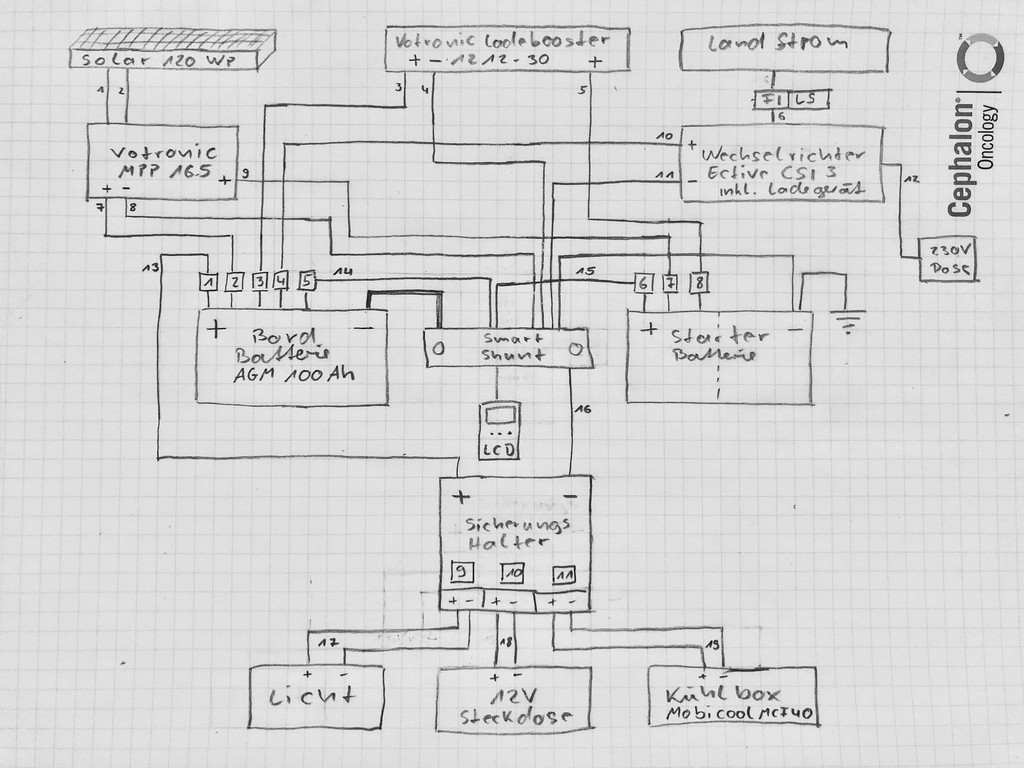 Solar 120 Wp
Votronic Ladebooster
+ - 1212-30 +
Land Strom
FI LS
1 2
3 4 5
6
Votronic
MPP 165
+ - +
7 8 9
10
11
+
-
Wechselrichter
Ective CSI 3
inkl. Ladegerät
12
230V
Dose
Cephalon®
Oncology
13
1 2 3 4 5
14
15
6 7 8
+ -
Bord
Batterie
AGM 100 Ah
Smart
Shunt
+ -
Starter
Batterie
LCD
16
+ -
Sicherungs
Halter
9 10 11
+ - + - + -
17 18 19
+ -
Licht
+ -
12V
Steckdose
+ -
Kühlbox
Mobicool MCF40